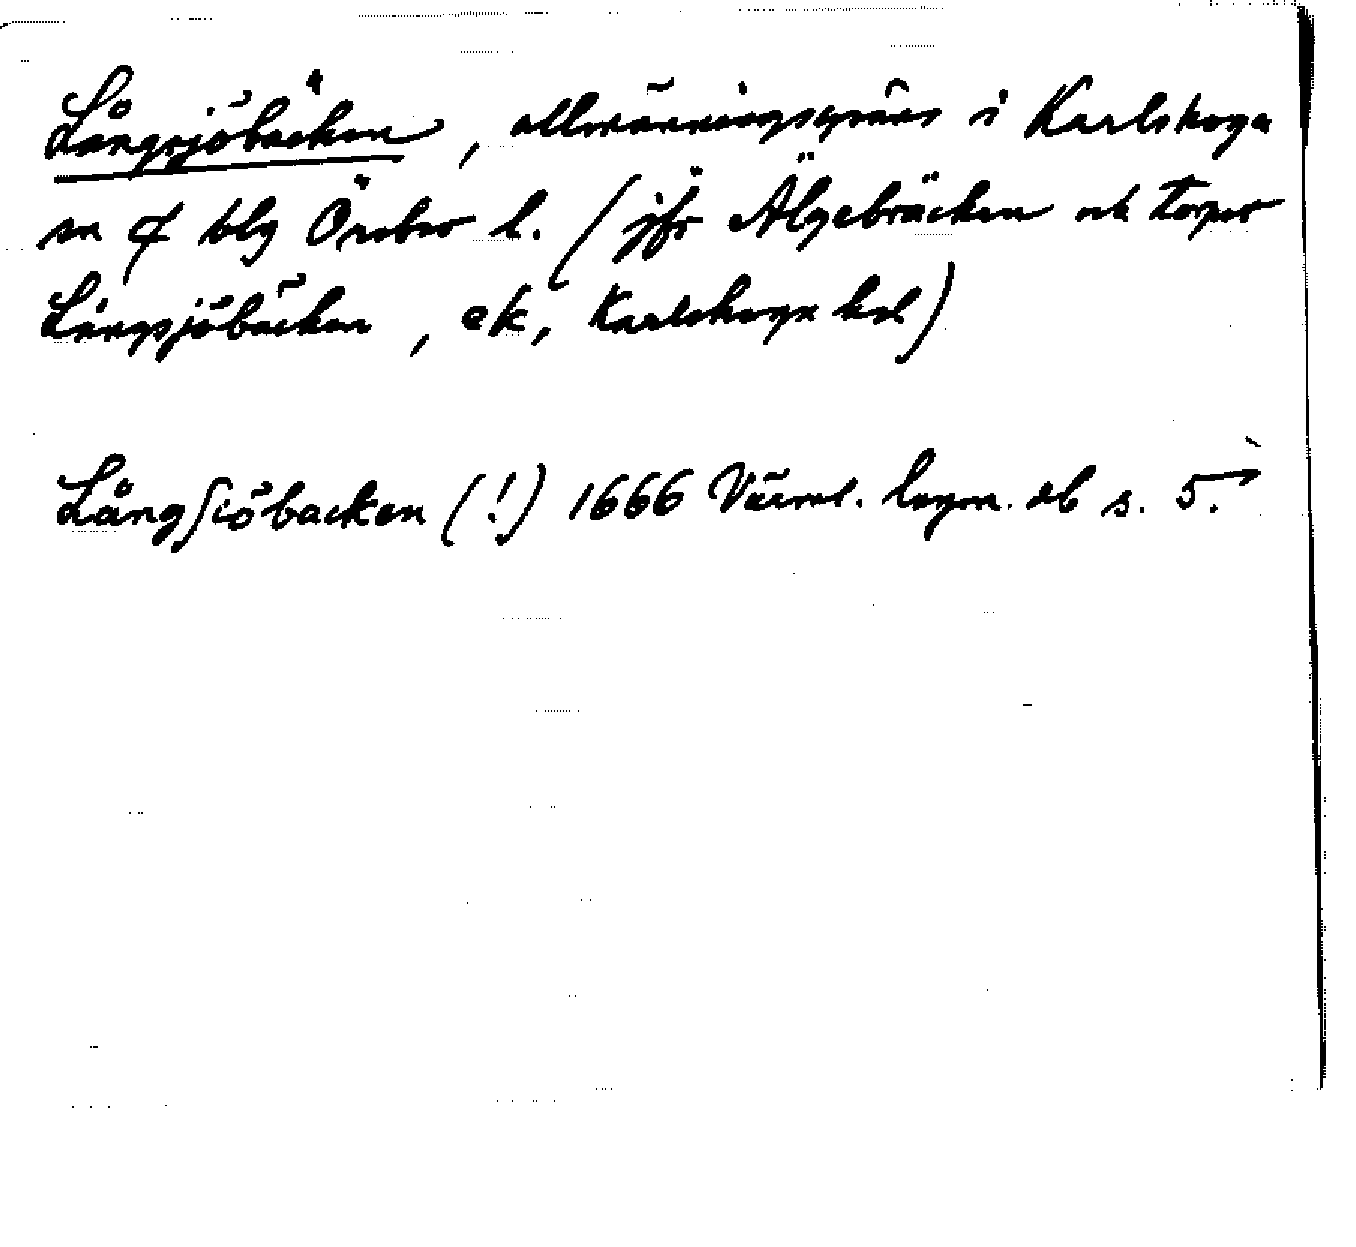 Långsjöbäcken, allmänningsgräns i Karlskoga
sn o blg Örebro l. (jfr Älgebräcken och torpet
Långsjöbäcken, ek, Karlskoga bsl)
Långsiöbacken (!) 1666 Värml. lagm. db s. 5.